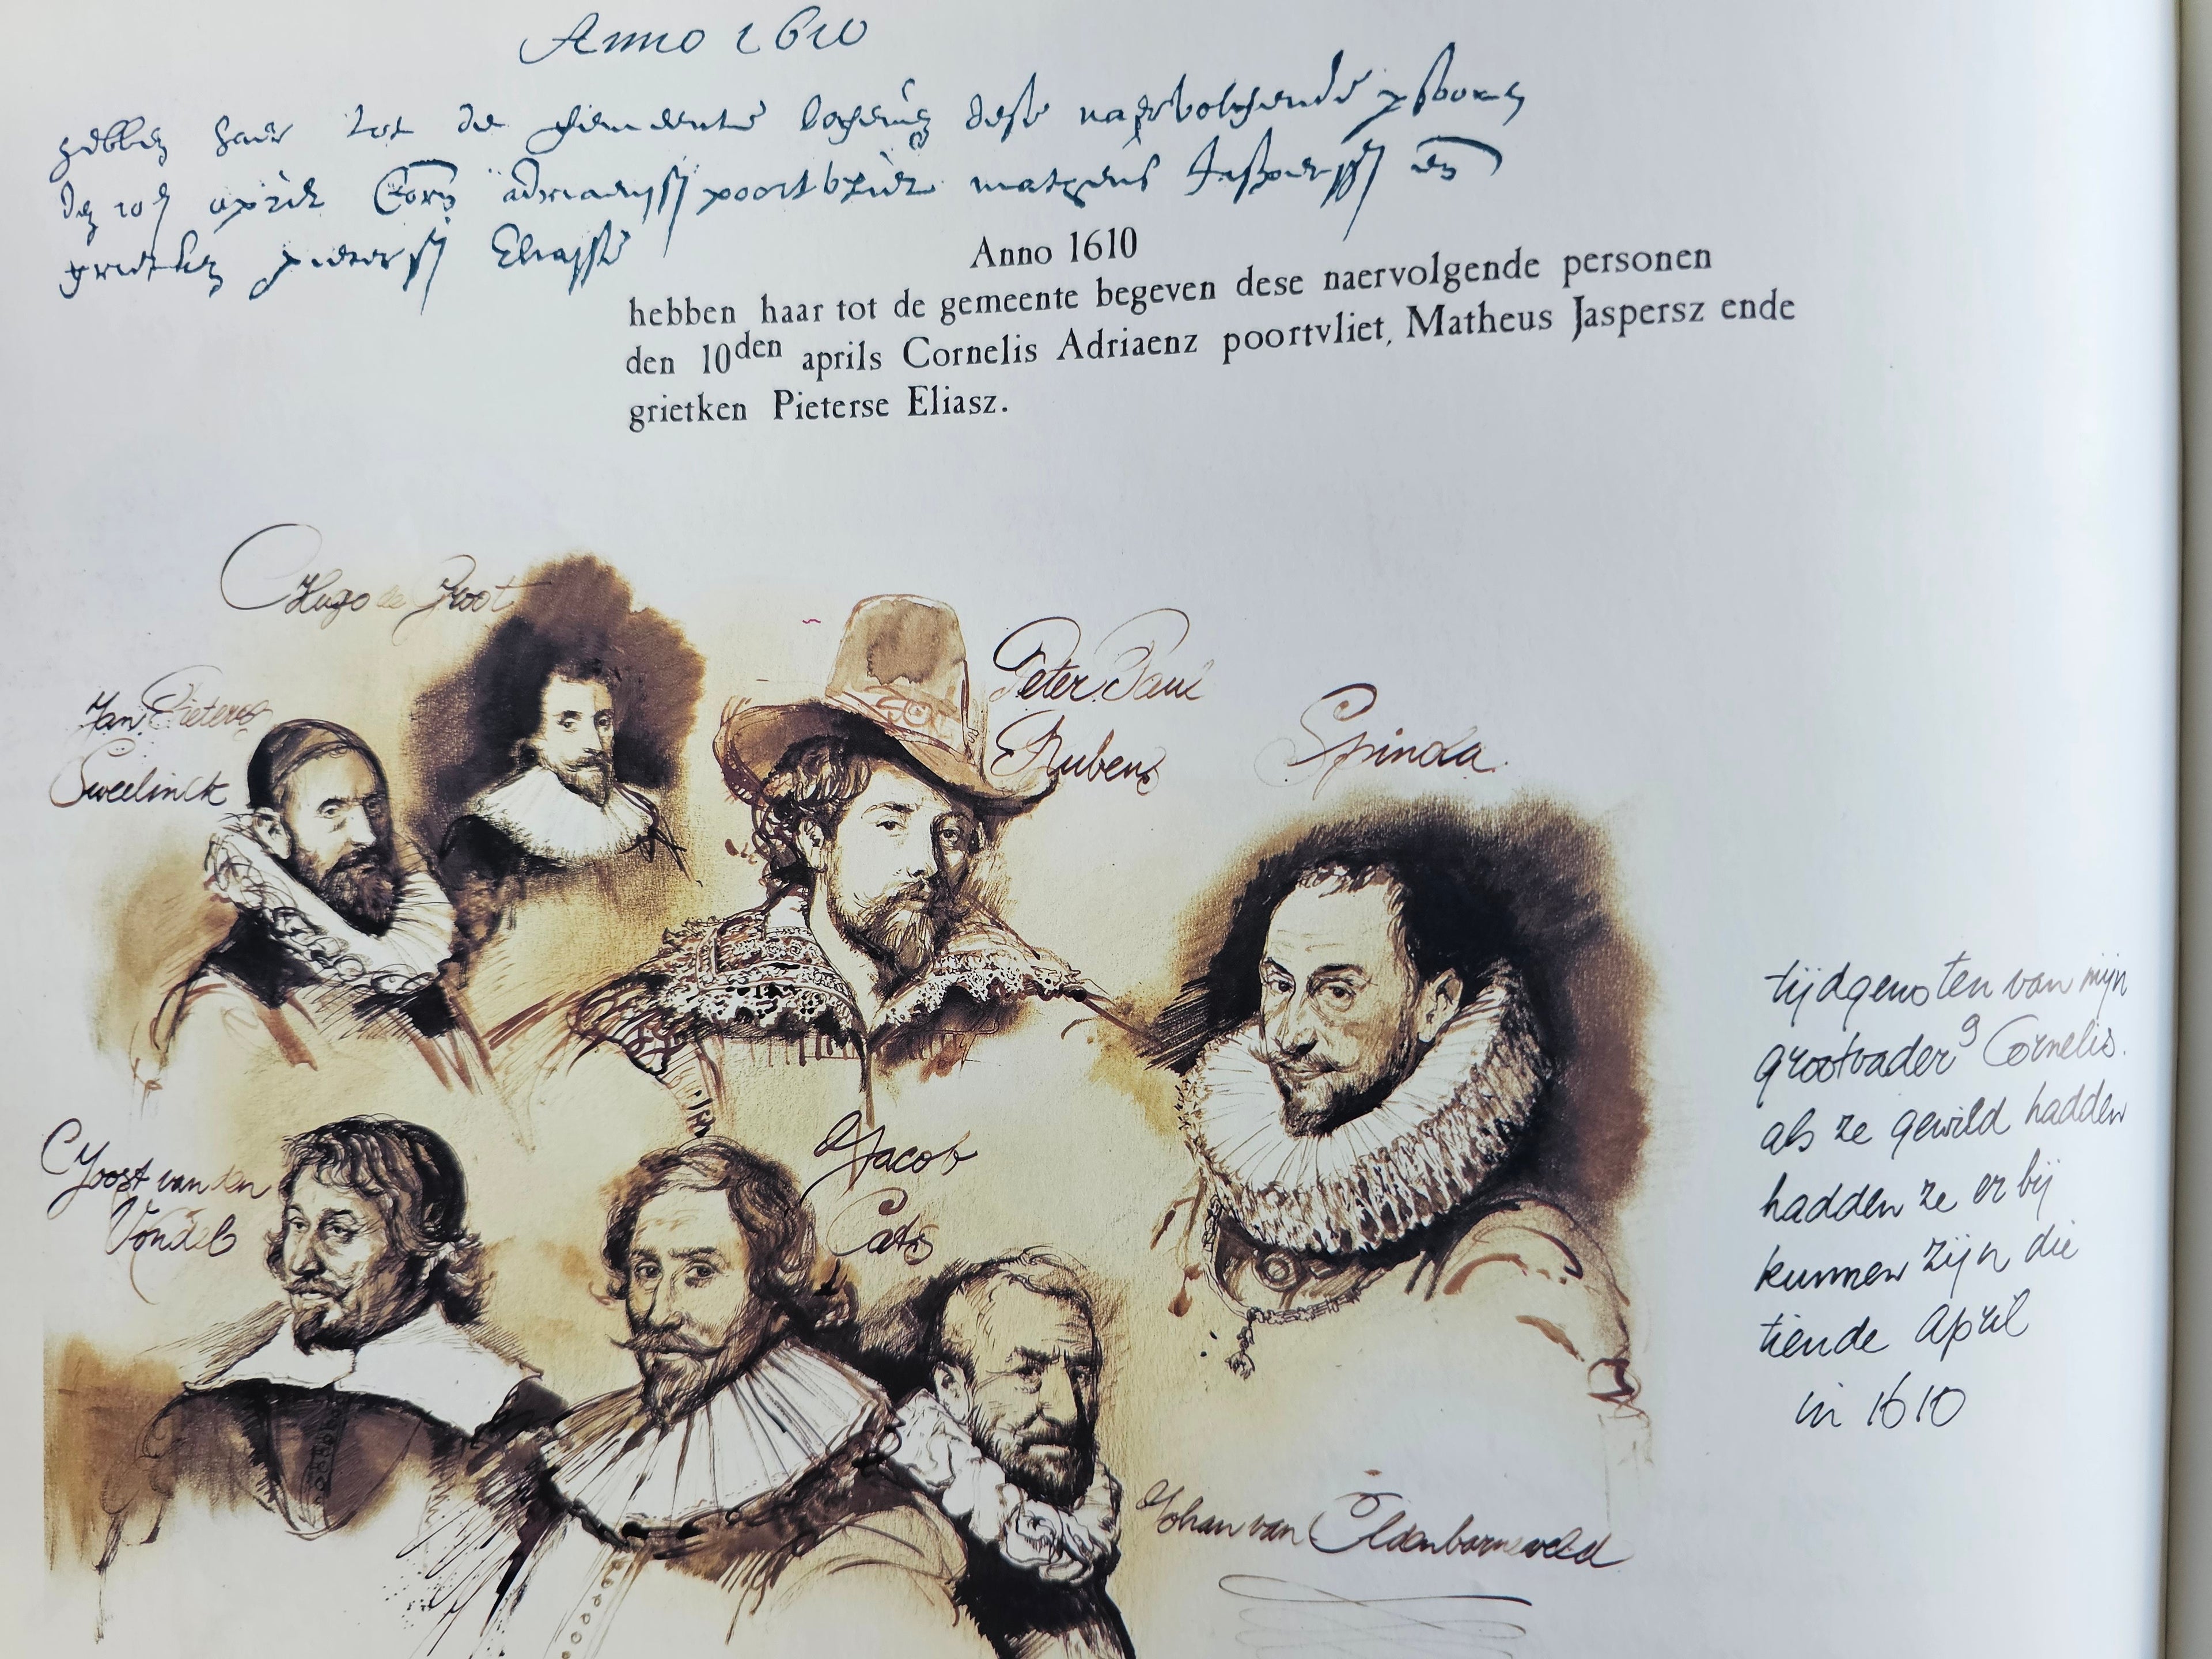 Anno 1610
hebben haer tot de gemeente begeven dese naervolgende persoonen
den 10en april Corn adriaenss poortvliet matheus Jasperss en
grietken pieterss Eliasse
Anno 1610
hebben haar tot de gemeente begeven dese naervolgende personen
den 10den aprils Cornelis Adriaenz poortvliet, Matheus Jaspersz ende
grietken Pieterse Eliasz.
Hugo de Groot
Jan Pieters
Sweelinck
Peter Paul
Rubens
Spinola
tijdgenoten van mijn
grootvader9 Cornelis.
als ze gewild hadden
hadden ze er bij
kunnen zijn die
tiende april
in 1610
Joost van den
Vondel
Jacob
Cats
Johan van Oldenbarneveld